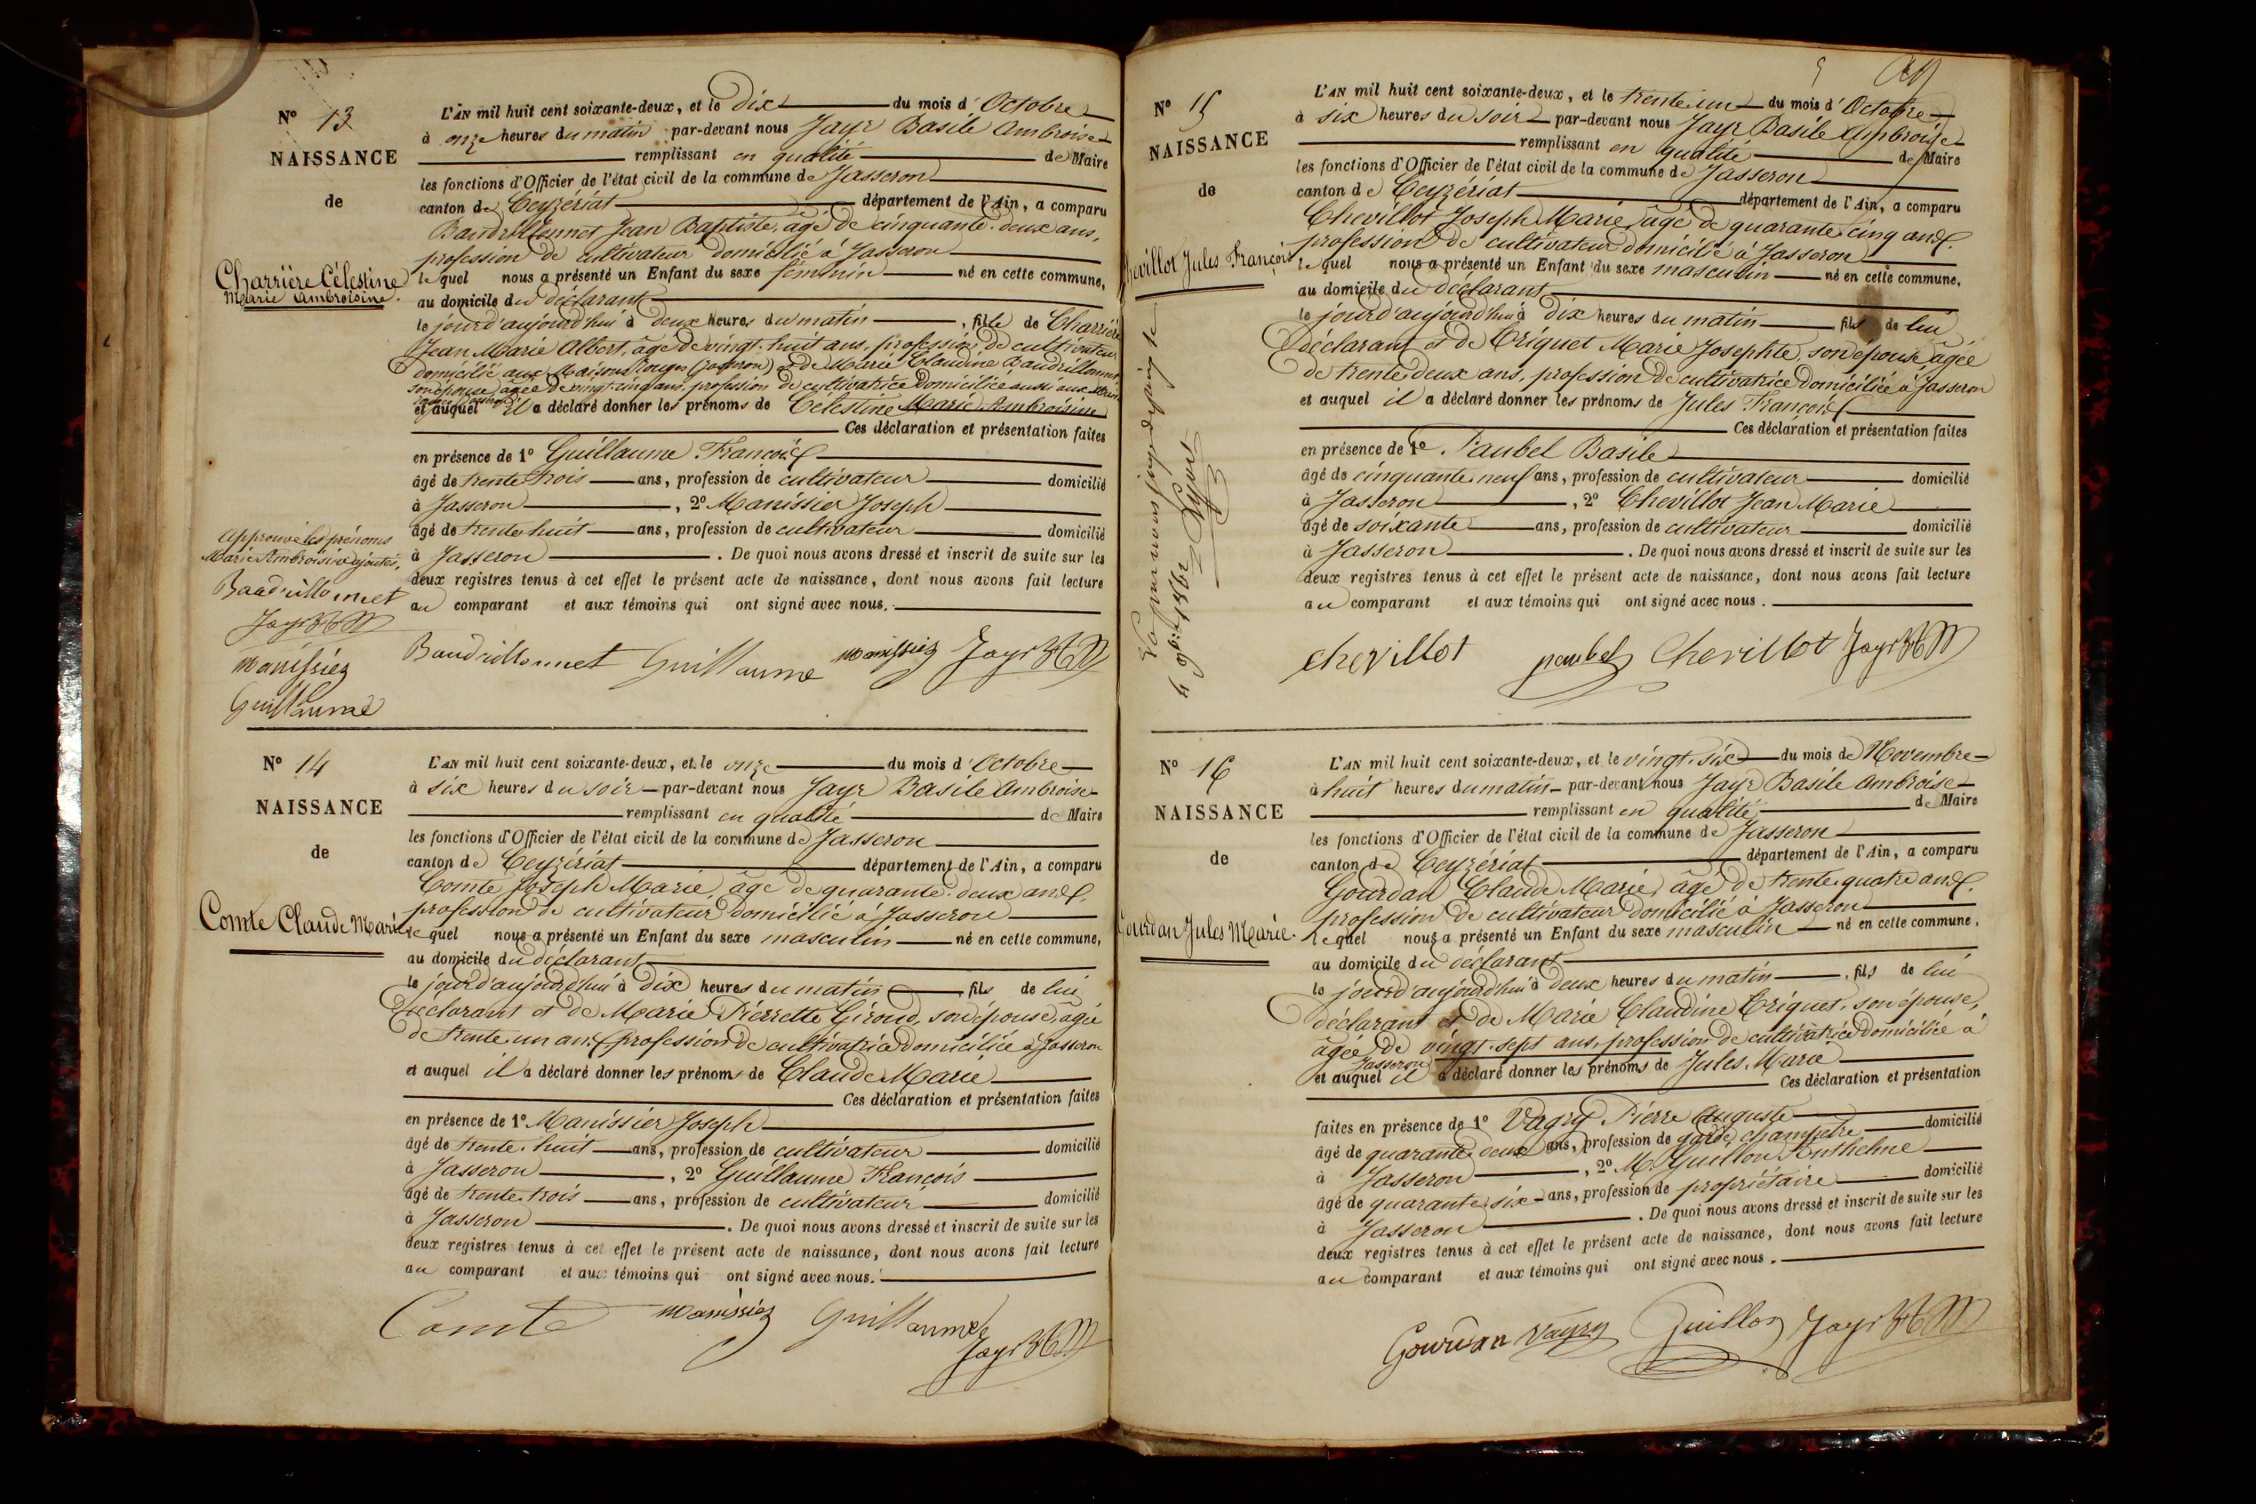 Nº 13
NAISSANCE
de
Charrière Célestine
Marie Ambroisine.
L'AN mil huit cent soixante-deux, et le dix du mois d'Octobre
à onze heures du matin par-devant nous Jayr Basile Ambroise
remplissant en qualité de Maire
les fonctions d'Officier de l'état civil de la commune de Jasseron
canton de Ceyzériat département de l'Ain, a comparu
Baudrillonnet Jean Baptiste, âgé de cinquante-deux ans,
profession de cultivateur domicilié à Jasseron
lequel nous a présenté un Enfant du sexe féminin né en cette commune,
au domicile du déclarant
le jourd'aujourd'hui à deux heures du matin, fille de Charrière
Jean Marie Albert, âgé de vingt-huit ans, profession de cultivateur
domicilié aux Maisons Rouges (Jasseron) et de Marie Claudine Baudrillonnet
son épouse âgée de vingt-cinq ans, profession de cultivatrice domiciliée aussi aux
et auquel il a déclaré donner les prénoms de Célestine Marie Ambroisine
Ces déclaration et présentation faites
en présence de 1º Guillaume François
âgé de trente trois ans, profession de cultivateur domicilié
à Jasseron, 2º Manissier Joseph
âgé de trente-huit ans, profession de cultivateur domicilié
à Jasseron. De quoi nous avons dressé et inscrit de suite sur les
deux registres tenus à cet effet le présent acte de naissance, dont nous avons fait lecture
au comparant et aux témoins qui ont signé avec nous.
Approuvé les prénoms
Marie Ambroisine ajoutés.
Baudrillonnet
Jayr
Manissier
Guillaume
Baudrillonnet Guillaume Manissier Jayr
Nº 14
NAISSANCE
de
Comte Claude Marie
L'AN mil huit cent soixante-deux, et le onze du mois d'Octobre
à six heures du soir par-devant nous Jayr Basile Ambroise
remplissant en qualité de Maire
les fonctions d'Officier de l'état civil de la commune de Jasseron
canton de Ceyzériat département de l'Ain, a comparu
Comte Joseph Marie, âgé de quarante-deux ans,
profession de cultivateur domicilié à Jasseron
lequel nous a présenté un Enfant du sexe masculin né en cette commune,
au domicile du déclarant
le jourd'aujourd'hui à dix heures du matin, fils de lui
déclarant et de Marie Pierrette Giroud, son épouse âgée
de trente un ans profession de cultivatrice domiciliée à Jasseron
et auquel il a déclaré donner les prénoms de Claude Marie
Ces déclaration et présentation faites
en présence de 1º Manissier Joseph
âgé de trente-huit ans, profession de cultivateur domicilié
à Jasseron, 2º Guillaume François
âgé de trente-trois ans, profession de cultivateur domicilié
à Jasseron. De quoi nous avons dressé et inscrit de suite sur les
deux registres tenus à cet effet le présent acte de naissance, dont nous avons fait lecture
au comparant et aux témoins qui ont signé avec nous.
Comte Manissier Guillaume
Jayr
Nº 15
NAISSANCE
de
Chevillot Jules François
L'AN mil huit cent soixante-deux, et le trente-un du mois d'Octobre
à six heures du soir par-devant nous Jayr Basile Ambroise
remplissant en qualité de Maire
les fonctions d'Officier de l'état civil de la commune de Jasseron
canton de Ceyzériat département de l'Ain, a comparu
Chevillot Joseph Marie, âgé de quarante-cinq ans,
profession de cultivateur domicilié à Jasseron
lequel nous a présenté un Enfant du sexe masculin né en cette commune,
au domicile du déclarant
le jourd'aujourd'hui à dix heures du matin fils de lui
déclarant et de Criquet Marie Josephte, son épouse âgée
de trente-deux ans, profession de cultivatrice domiciliée à Jasseron
et auquel il a déclaré donner les prénoms de Jules François
Ces déclaration et présentation faites
en présence de 1º. Paubel Basile
âgé de cinquante-neuf ans, profession de cultivateur domicilié
à Jasseron, 2º Chevillot Jean Marie
âgé de soixante ans, profession de cultivateur domicilié
à Jasseron. De quoi nous avons dressé et inscrit de suite sur les
deux registres tenus à cet effet le présent acte de naissance, dont nous avons fait lecture
au comparant et aux témoins qui ont signé avec nous.
chevillot paubel Chevillot Jayr
Nº 16
NAISSANCE
de
Gourdan Jules Marie.
L'AN mil huit cent soixante-deux, et le vingt-six du mois de Novembre
à huit heures du matin par-devant nous Jayr Basile Ambroise
remplissant en qualité de Maire
les fonctions d'Officier de l'état civil de la commune de Jasseron
canton de Ceyzériat département de l'Ain, a comparu
Gourdan Claude Marie, âgé de trente-quatre ans,
profession de cultivateur domicilié à Jasseron
lequel nous a présenté un Enfant du sexe masculin né en cette commune,
au domicile du déclarant
le jourd'aujourd'hui à deux heures du matin, fils de lui
déclarant et de Marie Claudine Criquet, son épouse,
âgée de vingt-sept ans, profession de cultivatrice domiciliée à
Jasseron
et auquel il a déclaré donner les prénoms de Jules Marie
Ces déclaration et présentation
faites en présence de 1º Vagry Pierre Auguste
âgé de quarante-deux ans, profession de garde champêtre domicilié
à Jasseron, 2º. M. Guillon Anthelme
âgé de quarante-six ans, profession de propriétaire domicilié
à Jasseron. De quoi nous avons dressé et inscrit de suite sur les
deux registres tenus à cet effet le présent acte de naissance, dont nous avons fait lecture
au comparant et aux témoins qui ont signé avec nous.
Gourdan Vagry Guillon Jayr